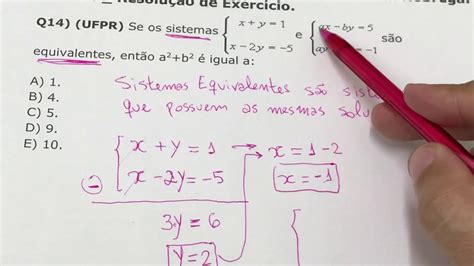 _ Resolução de Exercício.
Q14) (UFPR) Se os sistemas { x + y = 1 e { ax − by = 5 são
x − 2y = −5 ay = −1
equivalentes, então a²+b² é igual a:
A) 1.
B) 4.
C) 5.
D) 9.
E) 10.
Sistemas Equivalentes são
que possuem as mesmas
{ x + y = 1
x − 2y = −5
3y = 6
y = 2
x = 1 − 2
x = −1
{